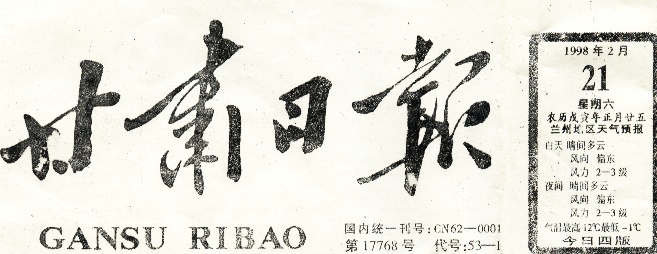 甘肃日报
GANSU RIBAO
国内统一刊号:CN62—0001
第17768号 代号:53—1
1998年2月
21
星期六
农历戊寅年正月廿五
兰州地区天气预报
白天 晴间多云
风向 偏东
风力 2—3级
夜间 晴间多云
风向 偏东
风力 2—3级
气温最高12℃最低-1℃
今日四版